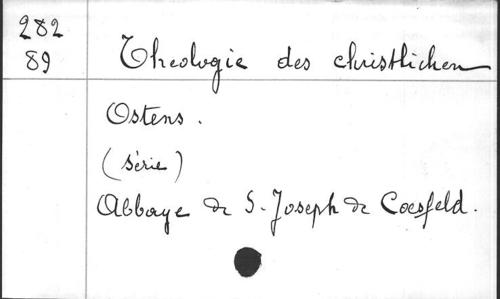 282
89
Theologie des christlichen
Ostens.
(série)
Abbaye de S. Joseph de Coesfeld.